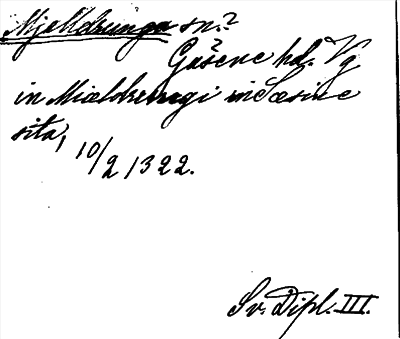 Mjelldrunga sn.?
Gäsene hd. Vg
in Mioeldrungi in Gæsine
sita,
10/2 1322.
Sv. Dipl. III.